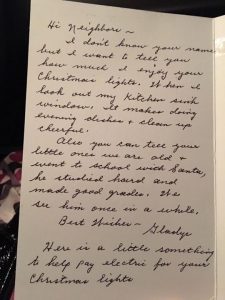 Hi Neighbors ~
I don't know your name
but I want to tell you
how much I enjoy your
Christmas lights. When I
look out my kitchen sink
window. It makes doing
evening dishes & clean up
cheerful.
Also you can tell your
little ones we are old &
went to school with Santa,
he studied hard and
made good grades. We
see him once in a while.
Best Wishes ~
Gladys
Here is a little something
to help pay electric for your
Christmas lights